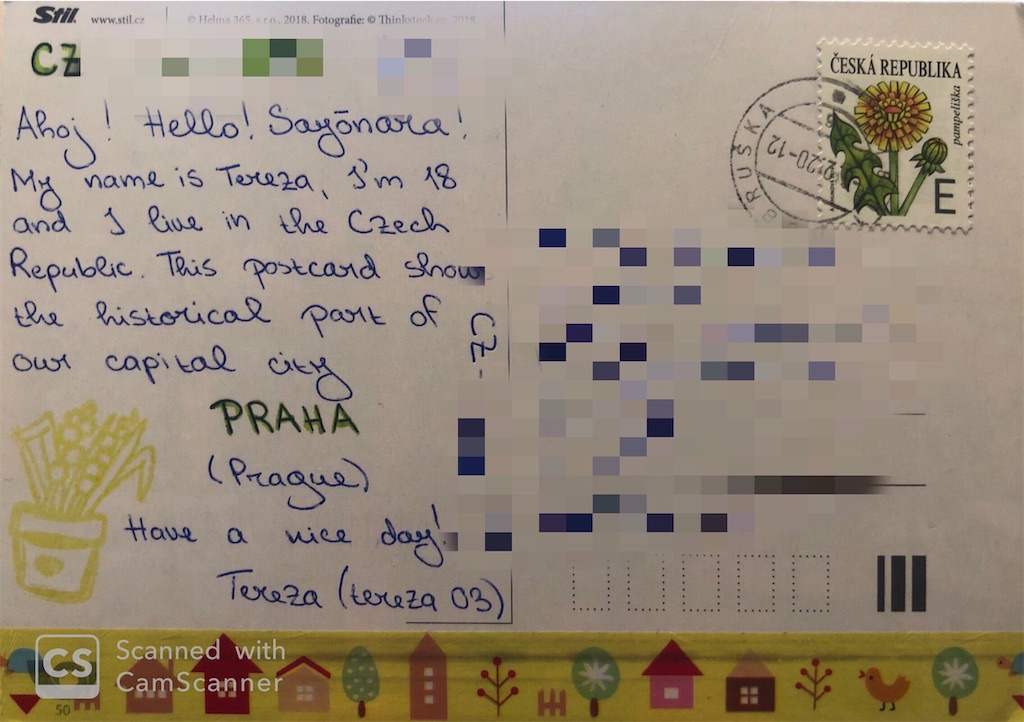 Stil. www.stil.cz © Helma 365, s.r.o., 2018. Fotografie: © Thinkstock.cz, 2018
CZ
Ahoj! Hello! Sayōnara!
My name is Tereza, I'm 18
and I live in the Czech
Republic. This postcard shows
the historical part of
our capital city
PRAHA
(Prague)
Have a nice day!
Tereza (tereza 03)
CZ-
ČESKÁ REPUBLIKA
pampeliška
E
50
CS Scanned with
CamScanner